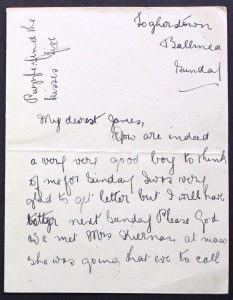 Logherstown
Ballinea
Sunday
Puzzle find the
kisses
My dearest James,
How are indeed
a very very good boy to think
of me for Sunday I was very
glad to get letter but I will have
next Sunday Please God
we met Mrs Kiernan at mass
she was going that eve to call